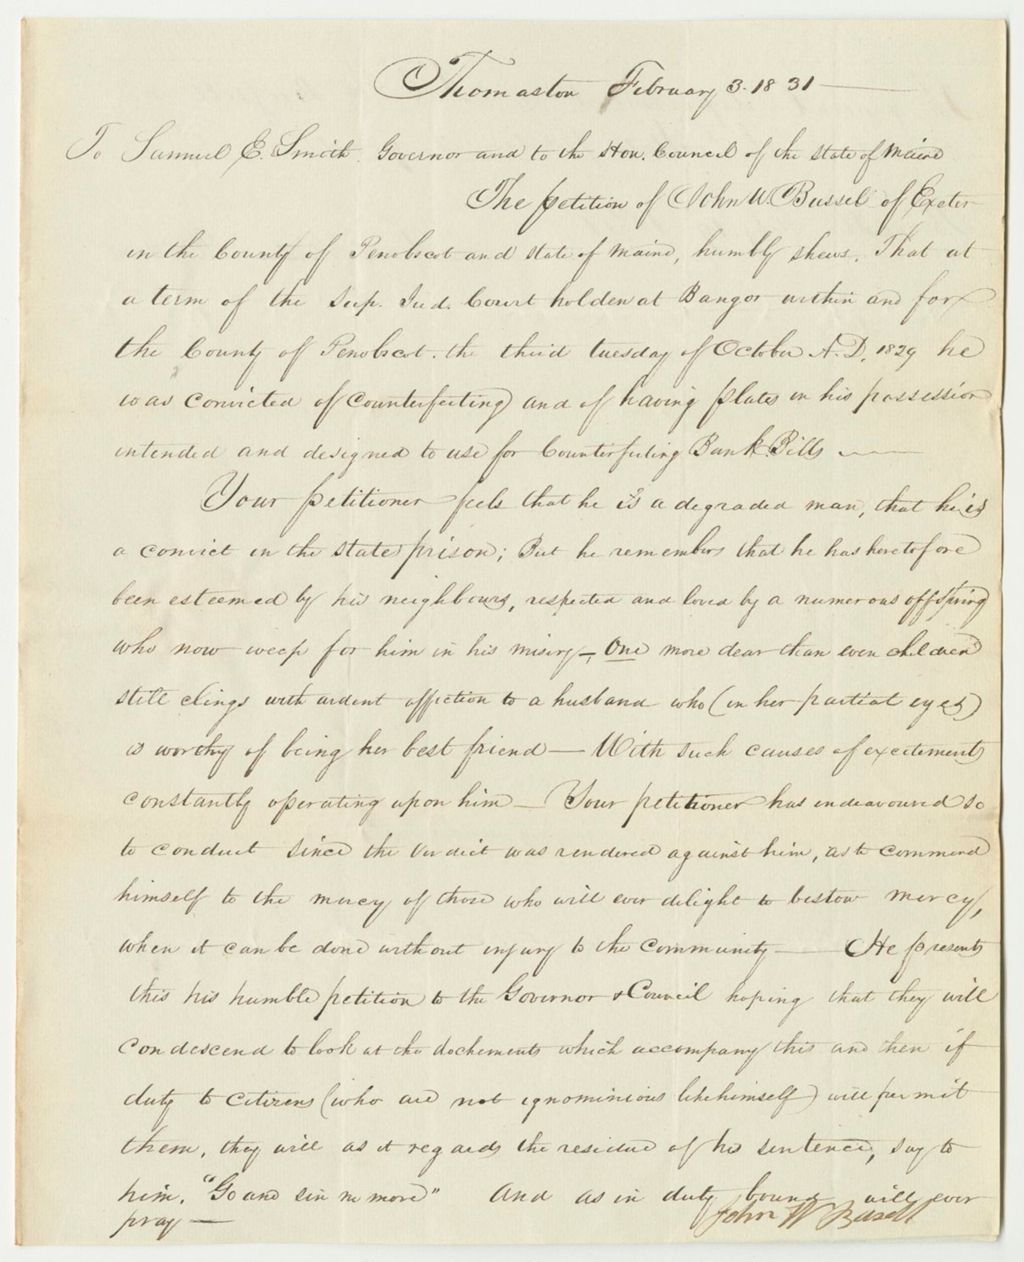 Thomaston February 3. 1831
To Samuel E. Smith Governor and to the Hon. Council of the state of Maine
The petition of John W. Bussel of Exeter
in the County of Penobscot and state of Maine, humbly shews. That at
a term of the Sup. Jud. Court holden at Bangor within and for
the County of Penobscot. the third tuesday of October A.D. 1829 he
was convicted of Counterfeiting and of having plates in his possession
intended and designed to use for Counterfeiting Bank Bills
Your petitioner feels that he is a degraded man, that he is
a convict in the states prison; But he remembers that he has heretofore
been esteemed by his neighbours, respected and loved by a numerous offspring
who now weep for him in his misery—, One more dear than even children
still clings with ardent affection to a husband who (in her partial eyes)
is worthy of being her best friend — With such causes of excitement
constantly operating upon him — Your petitioner has endeavoured so
to conduct since the Verdict was rendered against him, as to commend
himself to the mercy of those who will ever delight to bestow mercy,
when it can be done without injury to the community — He presents
this his humble petition to the Governor & Council hoping that they will
condescend to look at the dochements which accompany this and then if
duty to citizens (who are not ignominious like himself) will permit
them, they will as it regards the residue of his sentence, say to
him. "Go and sin no more" And as in duty bound will ever
pray —
John W Bussell